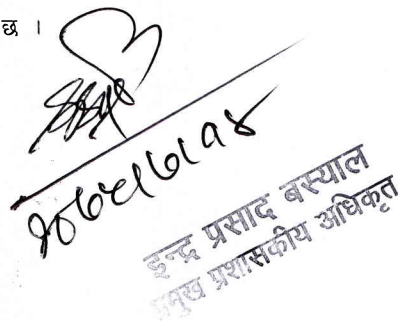 छ ।
२०७५।७।१४
इन्द्र प्रसाद बस्याल
प्रमुख प्रशासकीय अधिकृत